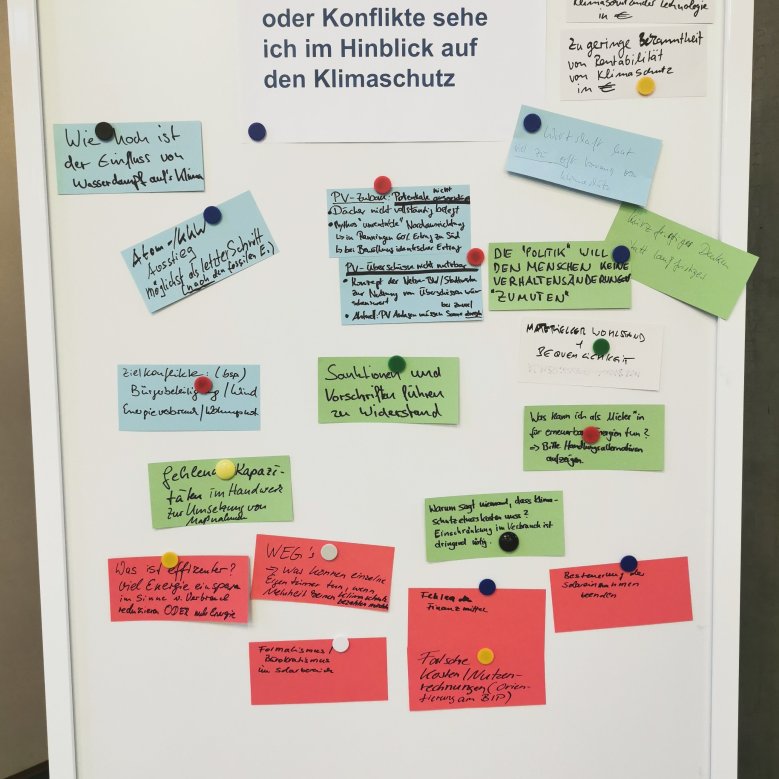 oder Konflikte sehe
ich im Hinblick auf
den Klimaschutz
Klimaschützender Technologie
in €
Zu geringe Bekanntheit
von Rentabilität
von Klimaschutz
in €
Wie hoch ist
der Einfluss von
Wasserdampf auf's Klima
Atom-/KKW
Ausstieg
möglichst als letzter Schritt
(nach den fossilen E.)
PV-Zubau: Potentiale nicht
• Dächer nicht vollständig belegt
• Mythos "unrentable" Nordausrichtung
60% Ertrag zu Süd
bei Bewölkung identischer Ertrag
PV-Überschüsse nicht nutzbar
• Konzept der Netze-BW/Stadtwerke
zur Nutzung von Überschüssen wäre
wünschenswert
• Aktuell: PV Anlagen müssen
Wirtschaft hat
viel zu oft
Klimaschutz
Kurzfristiges Denken
statt langfristiges
DIE "POLITIK" WILL
DEN MENSCHEN KEINE
VERHALTENSÄNDERUNGEN
"ZUMUTEN"
MATERIELLER WOHLSTAND
+
BEQUEMLICHKEIT
Zielkonflikte: (bsp)
Bürgerbeteiligung/Wind
Energieverbrauch/Wohnungsnot
Sanktionen und
Vorschriften führen
zu Widerstand
Was kann ich als Mieter*in
für erneuerbare Energien tun?
⇒ Bitte Handlungsalternativen
aufzeigen
fehlende Kapazi-
täten im Handwerk
zur Umsetzung von
Maßnahmen
Warum sagt niemand, dass Klima-
schutz etwas kosten muss?
Einschränkung im Verbrauch ist
dringend nötig.
Was ist effizienter?
Viel Energie einsparen
im Sinne v. Verbrauch
reduzieren ODER mehr Energie
WEG's
⇒ Was können einzelne
Eigentümer tun, wenn
Mehrheit keinen Klimaschutz
bezahlen möchte
Fehlende
Finanzmittel
Besteuerung der
Solareinnahmen
beenden
Formalismus/
Bürokratismus
im Solarbereich
Falsche
Kosten/Nutzen-
rechnungen (Orien-
tierung am BIP)